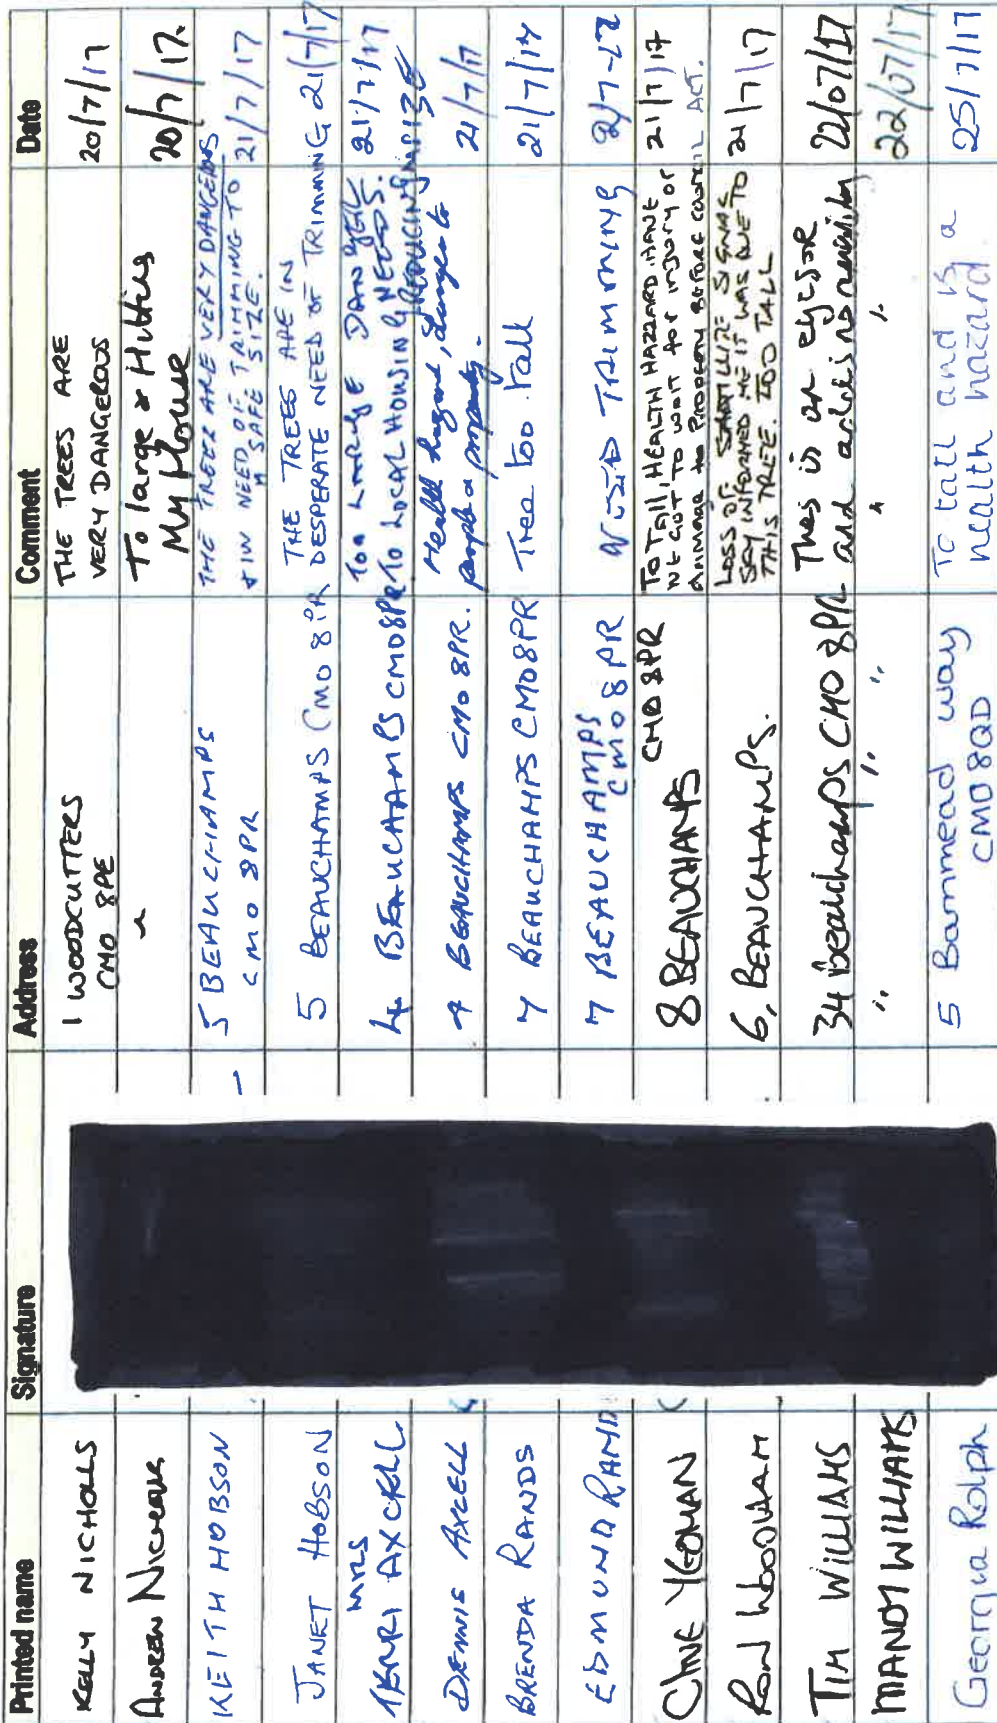 Printed name Signature Address Comment Date
KELLY NICHOLLS 1 WOODCUTTERS CM0 8PE THE TREES ARE VERY DANGEROUS 20/7/17
ANDREW NICHOLLS " To large & Hutting My House 20/7/17.
KEITH HOBSON 5 BEAUCHAMPS CM0 8PR THE TREES ARE VERY DANGEROUS & IN NEED OF TRIMMING TO A SAFE SIZE. 21/7/17
JANET HOBSON 5 BEAUCHAMPS CM0 8PR THE TREES ARE IN DESPERATE NEED OF TRIMMING 21/7/17
MRS TERRI AXCELL 4 BEAUCHAMPS CM08PR Too Large DANGER To LOCAL HOUSING & NEEDS REDUCING IN SIZE 21/7/17
DENNIS AXCELL 4 BEAUCHAMPS CM0 8PR. Health hazard, danger to people & property. 21/7/17
BRENDA RANDS 7 BEAUCHAMPS CM08PR Tree too tall 21/7/17
EDMUND RAND 7 BEAUCHAMPS CM0 8PR NEED TRIMMING 21/7-17
CLIVE YEOMAN 8 BEAUCHAMPS CM0 8PR TO TAll, HEALTH HAZZARD. HAVE WE GOT TO WAIT for INJURY or DAMMAGE to PROPERTY BEFORE COUNCIL ACT. 21/7/17
RON WOODHAM 6, BEAUCHAMPS. LOSS OF SATTLLITE SIGNAL SKY INFORMED ME IT WAS DUE TO THIS TREE. TOO TALL 21/7/17
TIM WILLIAMS 34 Beauchamps CM0 8PR This is an eyesor and 22/07/17
MANDY WILLIAMS " " " " " 22/07/17
Georgia Rolph 5 Barnmead way CM0 8QD To tall and is a health hazard 25/7/17